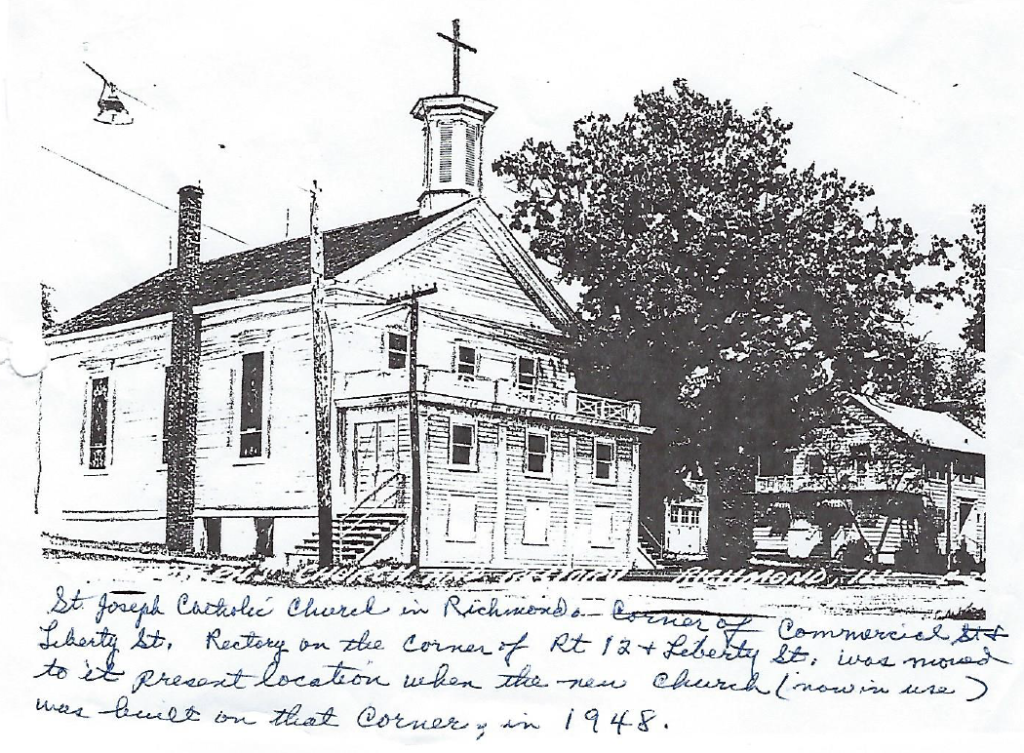 CHURCH AND RECTORY RICHMOND, ILL.
St. Joseph Catholic Church in Richmond. - Corner of Commercial St &
Liberty St. Rectory on the corner of Rt 12 & Liberty St. was moved
to it present location when the new Church (now in use)
was built on that corner, in 1948.